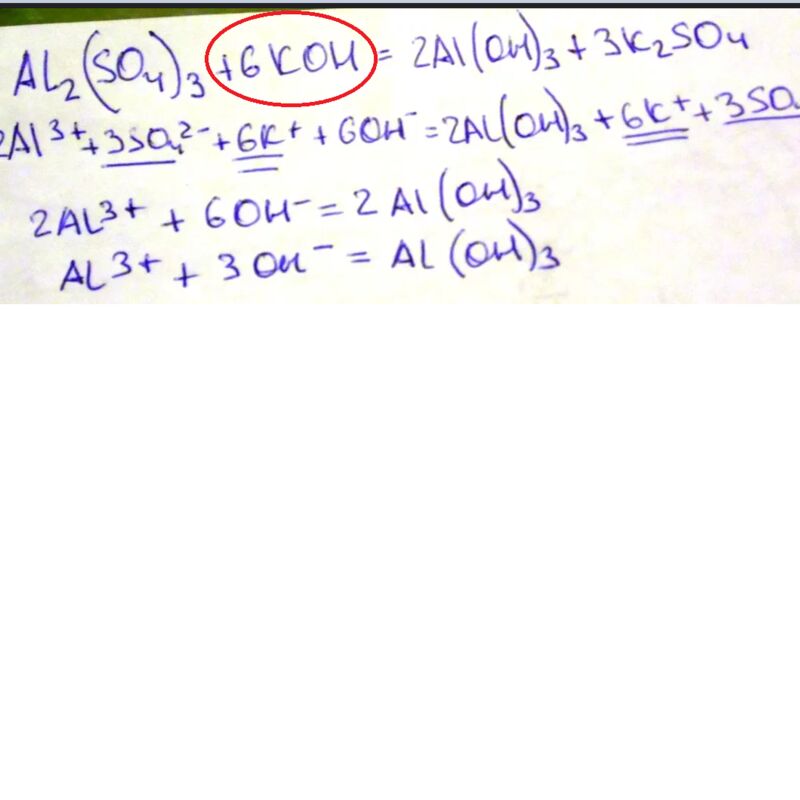 Al₂(SO₄)₃ + 6KOH = 2Al(OH)₃ + 3K₂SO₄
2Al³⁺ + 3SO₄²⁻ + 6K⁺ + 6OH⁻ = 2Al(OH)₃ + 6K⁺ + 3SO
2Al³⁺ + 6OH⁻ = 2Al(OH)₃
Al³⁺ + 3OH⁻ = Al(OH)₃